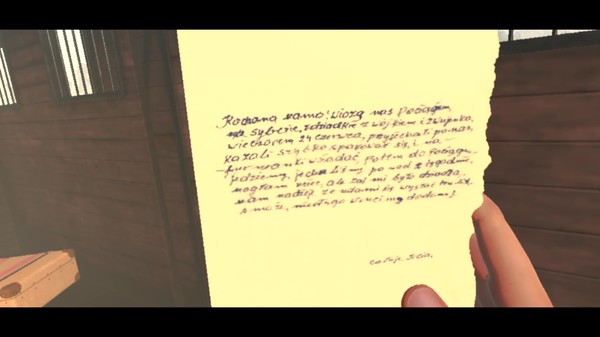 Kochana mamo! wiozą nas pociągiem
na syberię, z dziadkiem z wójkiem i
wieczorem 24 czerwca, przyjechali po nas,
kazali szybko spakować się, i na
furmanki wsiadać, potem do pociągu.
jedziemy, jechaliśmy po wod z tygodniu,
mogłam uciec, ale żal mi było dziadka,
mam nadzieję że uda mi się wysłać ten list
a może, niedługo wrócimy do domu!
całuję